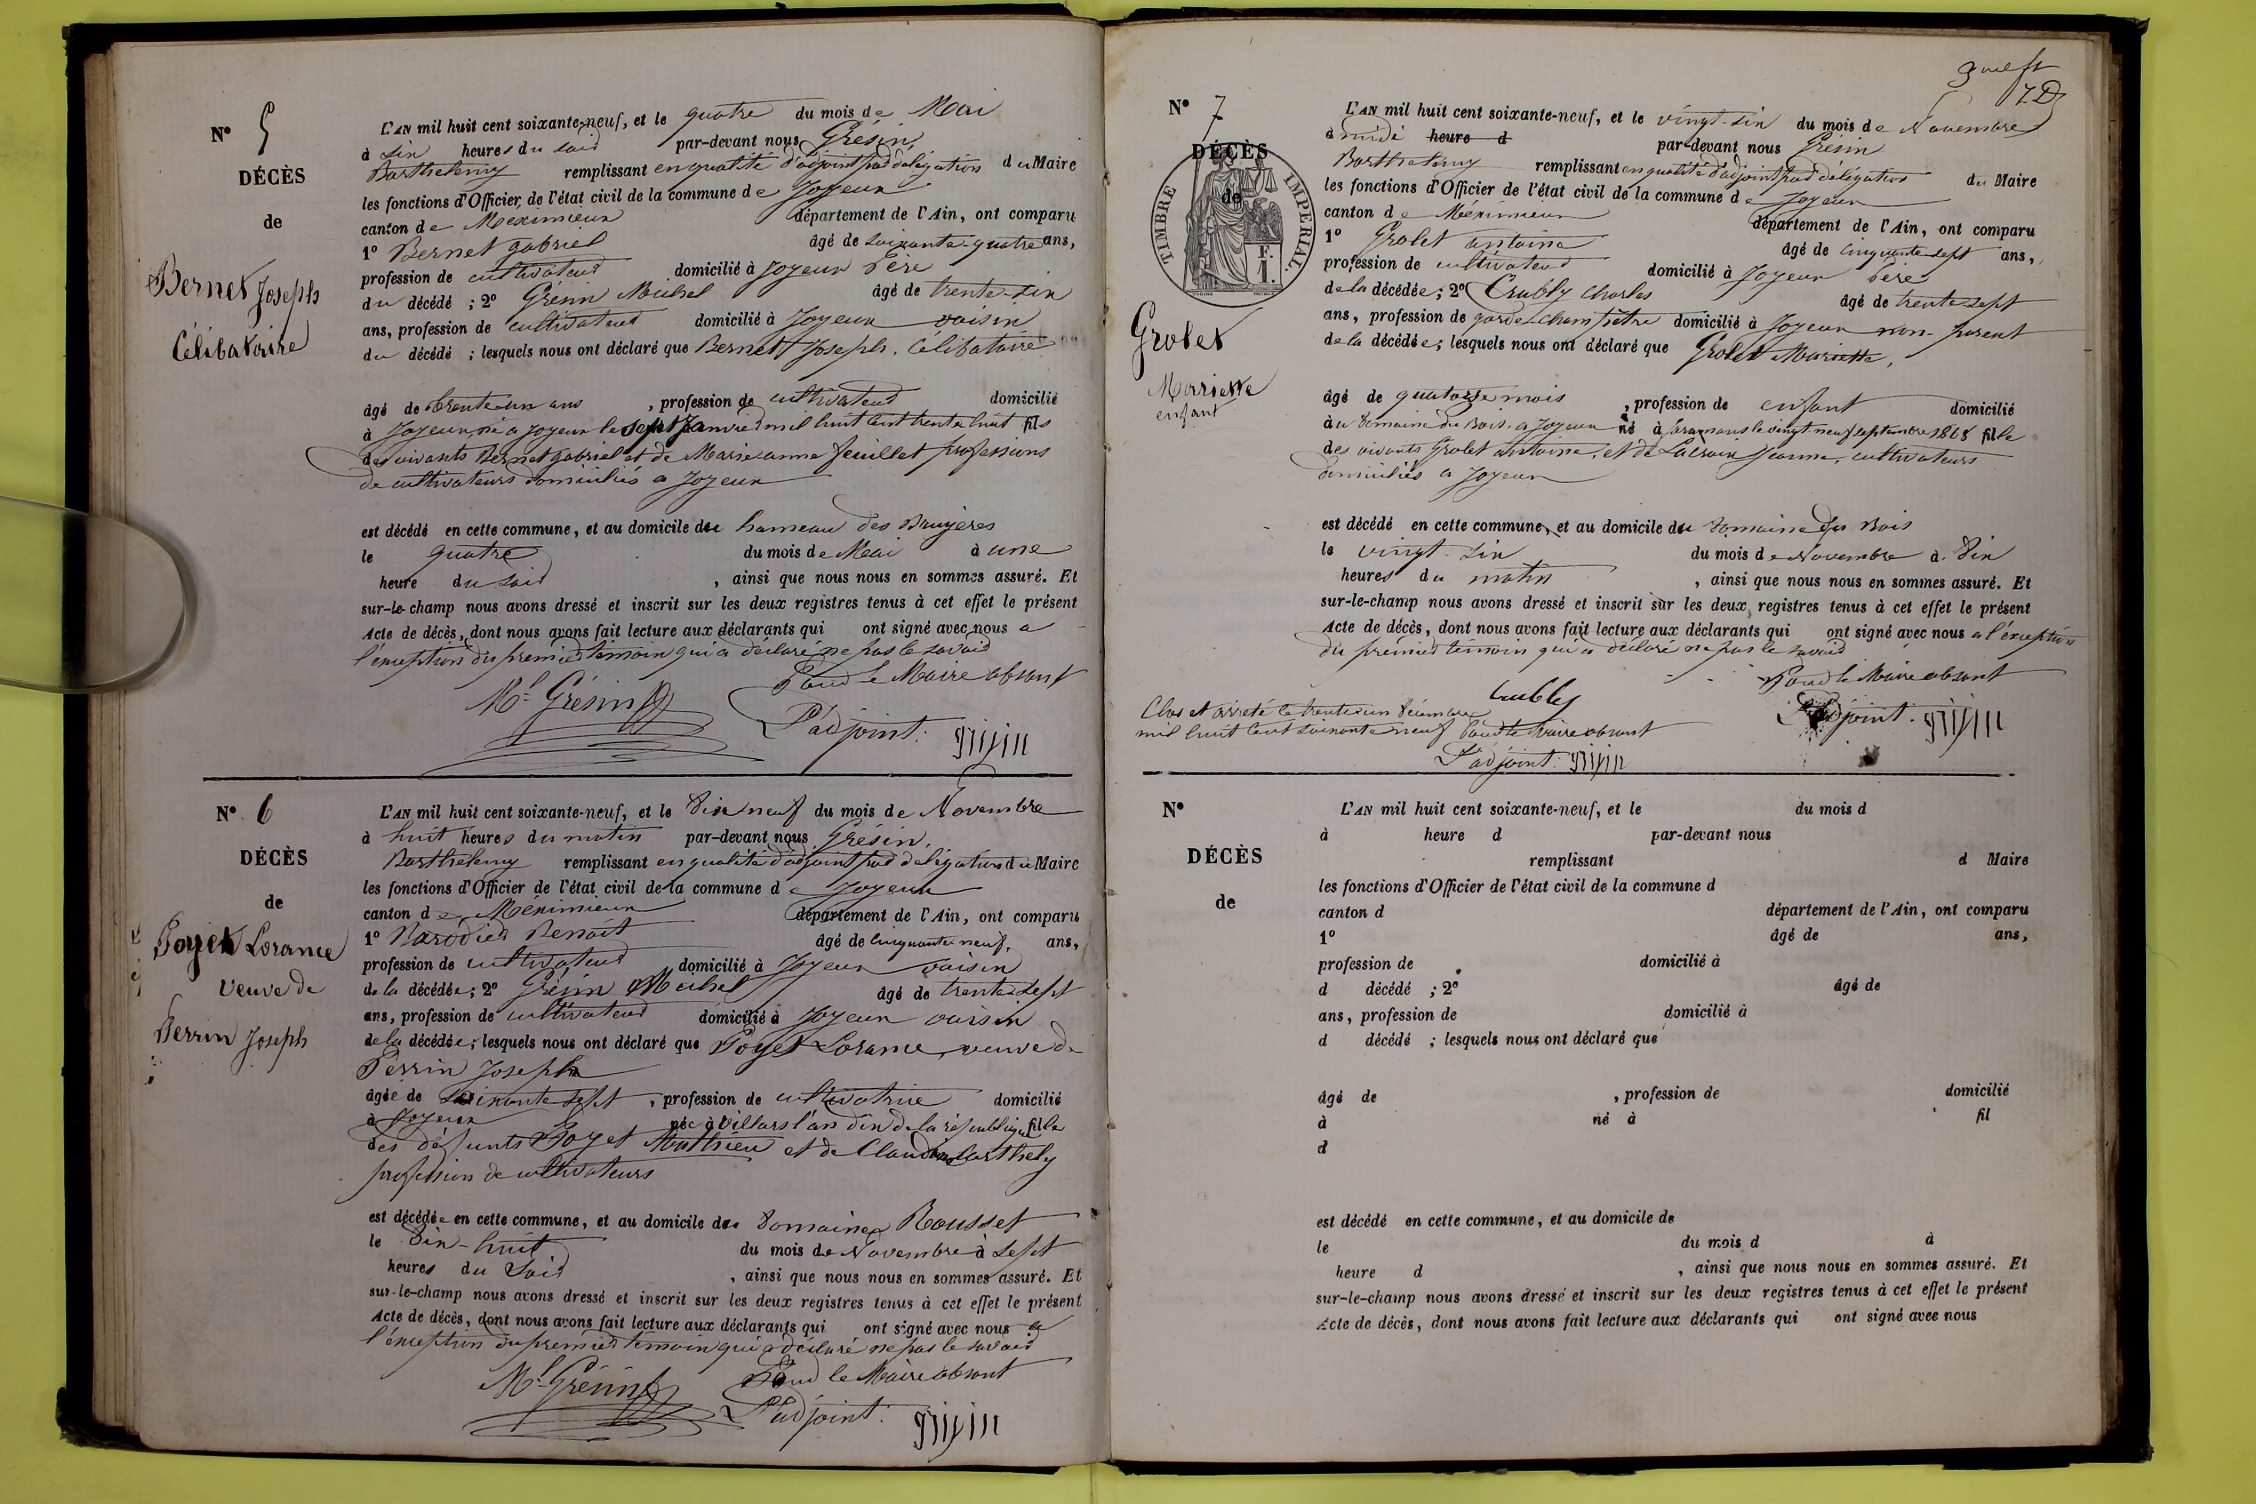 N° 5
DÉCÈS
de
Bernet Joseph
Célibataire
L'AN mil huit cent soixante-neuf, et le quatre du mois de Mai
à six heures du soir par-devant nous Grésin,
Barthelemy remplissant en qualité d'adjoint par délégation du Maire
les fonctions d'Officier de l'état civil de la commune de Joyeux
canton de Meximieux département de l'Ain, ont comparu
1° Bernet gabriel âgé de soixante-quatre ans,
profession de cultivateur domicilié à Joyeux Père
du décédé ; 2° Grésin Michel âgé de trente-six
ans, profession de cultivateur domicilié à Joyeux voisin
du décédé ; lesquels nous ont déclaré que Bernet Joseph, Célibataire
âgé de trente-un ans , profession de cultivateur domicilié
à Joyeux, né à Joyeux le sept Janvier mil huit cent trente huit fils
des vivants Bernet gabriel et de Marie anne feuillet professions
de cultivateurs domiciliés a Joyeux
est décédé en cette commune, et au domicile du hameau des Bruyères
le quatre du mois de Mai à une
heure du soir , ainsi que nous nous en sommes assuré. Et
sur-le-champ nous avons dressé et inscrit sur les deux registres tenus à cet effet le présent
Acte de décès, dont nous avons fait lecture aux déclarants qui ont signé avec nous a
l'éxception du premier témoin qui a déclaré ne pas le savoir
Pour le Maire absant
Ml Grésin
L'adjoint: grisin
N° 6
DÉCÈS
de
Poyet Lorance
veuve de
Perrin Joseph
L'AN mil huit cent soixante-neuf, et le dix neuf du mois de Novembre
à huit heures du matin par-devant nous Grésin,
Barthelemy remplissant en qualité d'adjoint par délégation du Maire
les fonctions d'Officier de l'état civil de la commune de Joyeux
canton de Méximieux département de l'Ain, ont comparu
1° Barodier Benoit âgé de cinquante neuf, ans,
profession de cultivateur domicilié à Joyeux voisin
de la décédée ; 2° Grésin Michel âgé de trente sept
ans, profession de cultivateur domicilié à Joyeux voisin
de la décédée ; lesquels nous ont déclaré que Poyet Lorance, veuve de
Perrin Joseph
âgée de soixante sept , profession de cultivatrice domicilié
à Joyeux née à Villars l'an dix de la république fille
des défunts Poyet Mathieu et de Claudine Barthely
profession de cultivateurs
est décédée en cette commune, et au domicile du domaine Rousset
le dix-huit du mois de Novembre à sept
heures du soir , ainsi que nous nous en sommes assuré. Et
sur-le-champ nous avons dressé et inscrit sur les deux registres tenus à cet effet le présent
Acte de décès, dont nous avons fait lecture aux déclarants qui ont signé avec nous a
l'éxception du premier témoin qui a déclaré ne pas le savoir
Ml Grésin Pour le Maire absant
L'adjoint: grisin
7.D
N° 7
DÉCÈS
de
TIMBRE IMPÉRIAL.
Grolet
Mariette
enfant
L'AN mil huit cent soixante-neuf, et le vingt-six du mois de Novembre
à midi heure d par-devant nous Grésin
Barthelemy remplissant en qualité d'adjoint par délégation du Maire
les fonctions d'Officier de l'état civil de la commune de Joyeux
canton de Méximieux département de l'Ain, ont comparu
1° Grolet antoine âgé de cinquante-sept ans,
profession de cultivateur domicilié à Joyeux Père
de la décédée ; 2° Crubly Charles âgé de trente-sept
ans, profession de garde-champêtre domicilié à Joyeux non-parent
de la décédée ; lesquels nous ont déclaré que Grolet Mariette,
âgé de quatorze mois , profession de enfant domicilié
à au domaine du Bois a Joyeux né à le vingt-neuf septembre 1868 fille
des vivants Grolet antoine, et de Lacroix Jeanne, cultivateurs
domiciliés a Joyeux
est décédé en cette commune, et au domicile du domaine du Bois
le vingt-six du mois de Novembre à dix
heures du matin , ainsi que nous nous en sommes assuré. Et
sur-le-champ nous avons dressé et inscrit sur les deux registres tenus à cet effet le présent
Acte de décès, dont nous avons fait lecture aux déclarants qui ont signé avec nous a l'éxception
du prémier témoin qui a déclaré ne pas le savoir
Pour le Maire absant
Crubly
L'adjoint: grisin
Clos et arreté le trente un décembre
mil huit cent soixante neuf Pour le Maire absant
L'adjoint: grisin
N°
DÉCÈS
de
L'AN mil huit cent soixante-neuf, et le du mois d
à heure d par-devant nous
remplissant d Maire
les fonctions d'Officier de l'état civil de la commune d
canton d département de l'Ain, ont comparu
1° âgé de ans,
profession de domicilié à
d décédé ; 2° âgé de
ans, profession de domicilié à
d décédé ; lesquels nous ont déclaré que
âgé de , profession de domicilié
à né à fil
d
est décédé en cette commune, et au domicile de
le du mois d à
heure d , ainsi que nous nous en sommes assuré. Et
sur-le-champ nous avons dressé et inscrit sur les deux registres tenus à cet effet le présent
Acte de décès, dont nous avons fait lecture aux déclarants qui ont signé avec nous